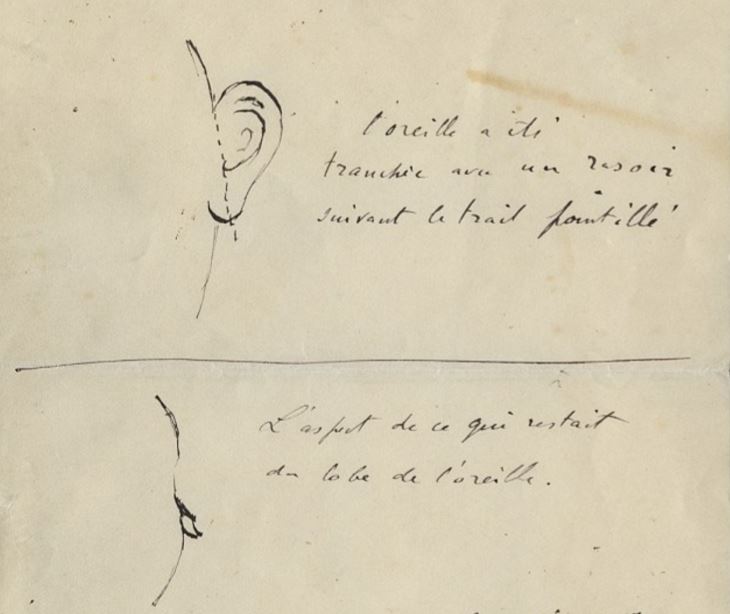 l'oreille a été
tranchée avec un rasoir
suivant le trait pointillé
L'aspect de ce qui restait
du lobe de l'oreille.